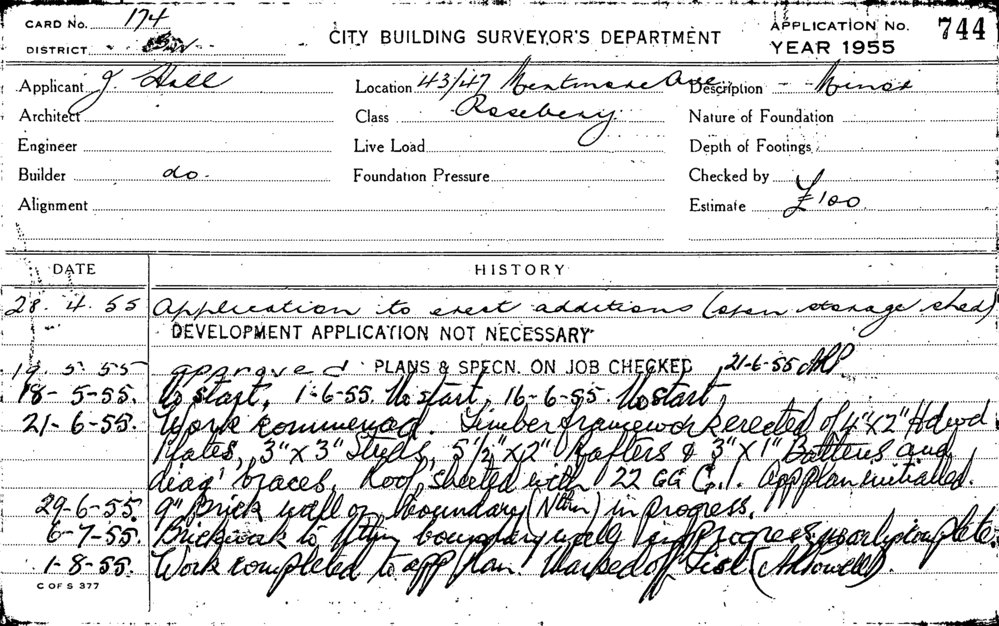 CARD No. 174
DISTRICT
CITY BUILDING SURVEYOR'S DEPARTMENT
APPLICATION No. 744
YEAR 1955
Applicant J. Hall
Location 43/47 Mentmore Ave
Description - Minor
Architect
Class Rosebery
Nature of Foundation
Engineer
Live Load
Depth of Footings
Builder do.
Foundation Pressure
Checked by
Alignment
Estimate £100
DATE HISTORY
28. 4. 55 Application to erect additions (open storage shed)
DEVELOPMENT APPLICATION NOT NECESSARY
19. 5. 55 approved PLANS & SPECN. ON JOB CHECKED 21-6-55
18-5-55. No start, 1-6-55. No start, 16-6-55. No start,
21-6-55. Work commenced. Timber framework erected of 4"x2" Hdwd
Plates, 3"x3" Studs, 5½"x2" Rafters & 3"x1" Battens and
diag' braces. Roof sheeted with 22 GG C.I. App plan initialled.
29-6-55. 9" Brick wall on boundary (Nthn) in progress.
6-7-55. Brickwork to Nthn boundary wall in progress nearly complete.
1-8-55. Work completed to app plan. Marked off List (
C OF S 377